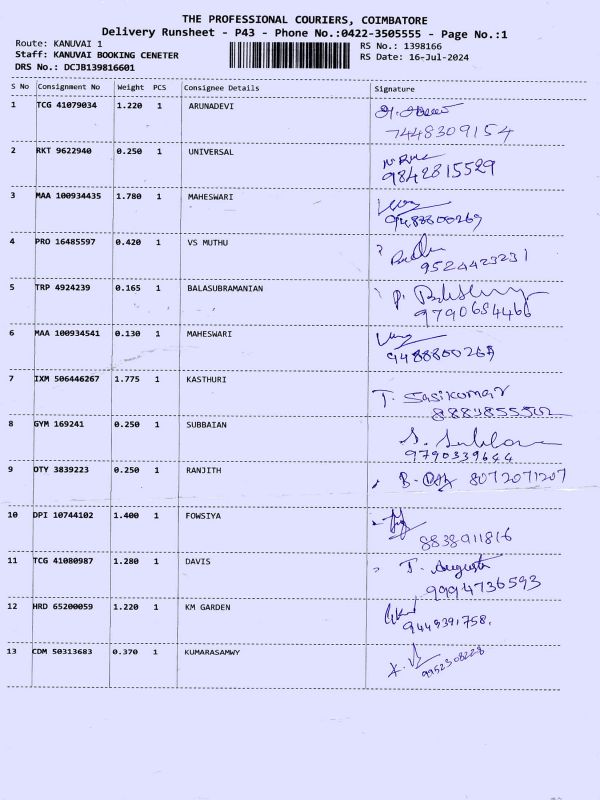 THE PROFESSIONAL COURIERS, COIMBATORE
Delivery Runsheet - P43 - Phone No.:0422-3505555 - Page No.:1
Route: KANUVAI 1
RS No.: 1398166
Staff: KANUVAI BOOKING CENETER
RS Date: 16-Jul-2024
DRS No.: DCJB139816601
S No Consignment No Weight PCS Consignee Details Signature
1 TCG 41079034 1.220 1 ARUNADEVI
7448309154
2 RKT 9622940 0.250 1 UNIVERSAL
9842815529
3 MAA 100934435 1.780 1 MAHESWARI
9488800269
4 PRO 16485597 0.420 1 VS MUTHU
9524423231
5 TRP 4924239 0.165 1 BALASUBRAMANIAN
9790654466
6 MAA 100934541 0.130 1 MAHESWARI
9488800269
7 IXM 506446267 1.775 1 KASTHURI
T. Sasikumar
8 GYM 169241 0.250 1 SUBBAIAN
9790339644
9 OTY 3839223 0.250 1 RANJITH
8072071207
10 DPI 10744102 1.400 1 FOWSIYA
8838911816
11 TCG 41080987 1.280 1 DAVIS
T. Augusta
9994736593
12 HRD 65200059 1.220 1 KM GARDEN
9449391758.
13 CDM 50313683 0.370 1 KUMARASAMWY
9952308228